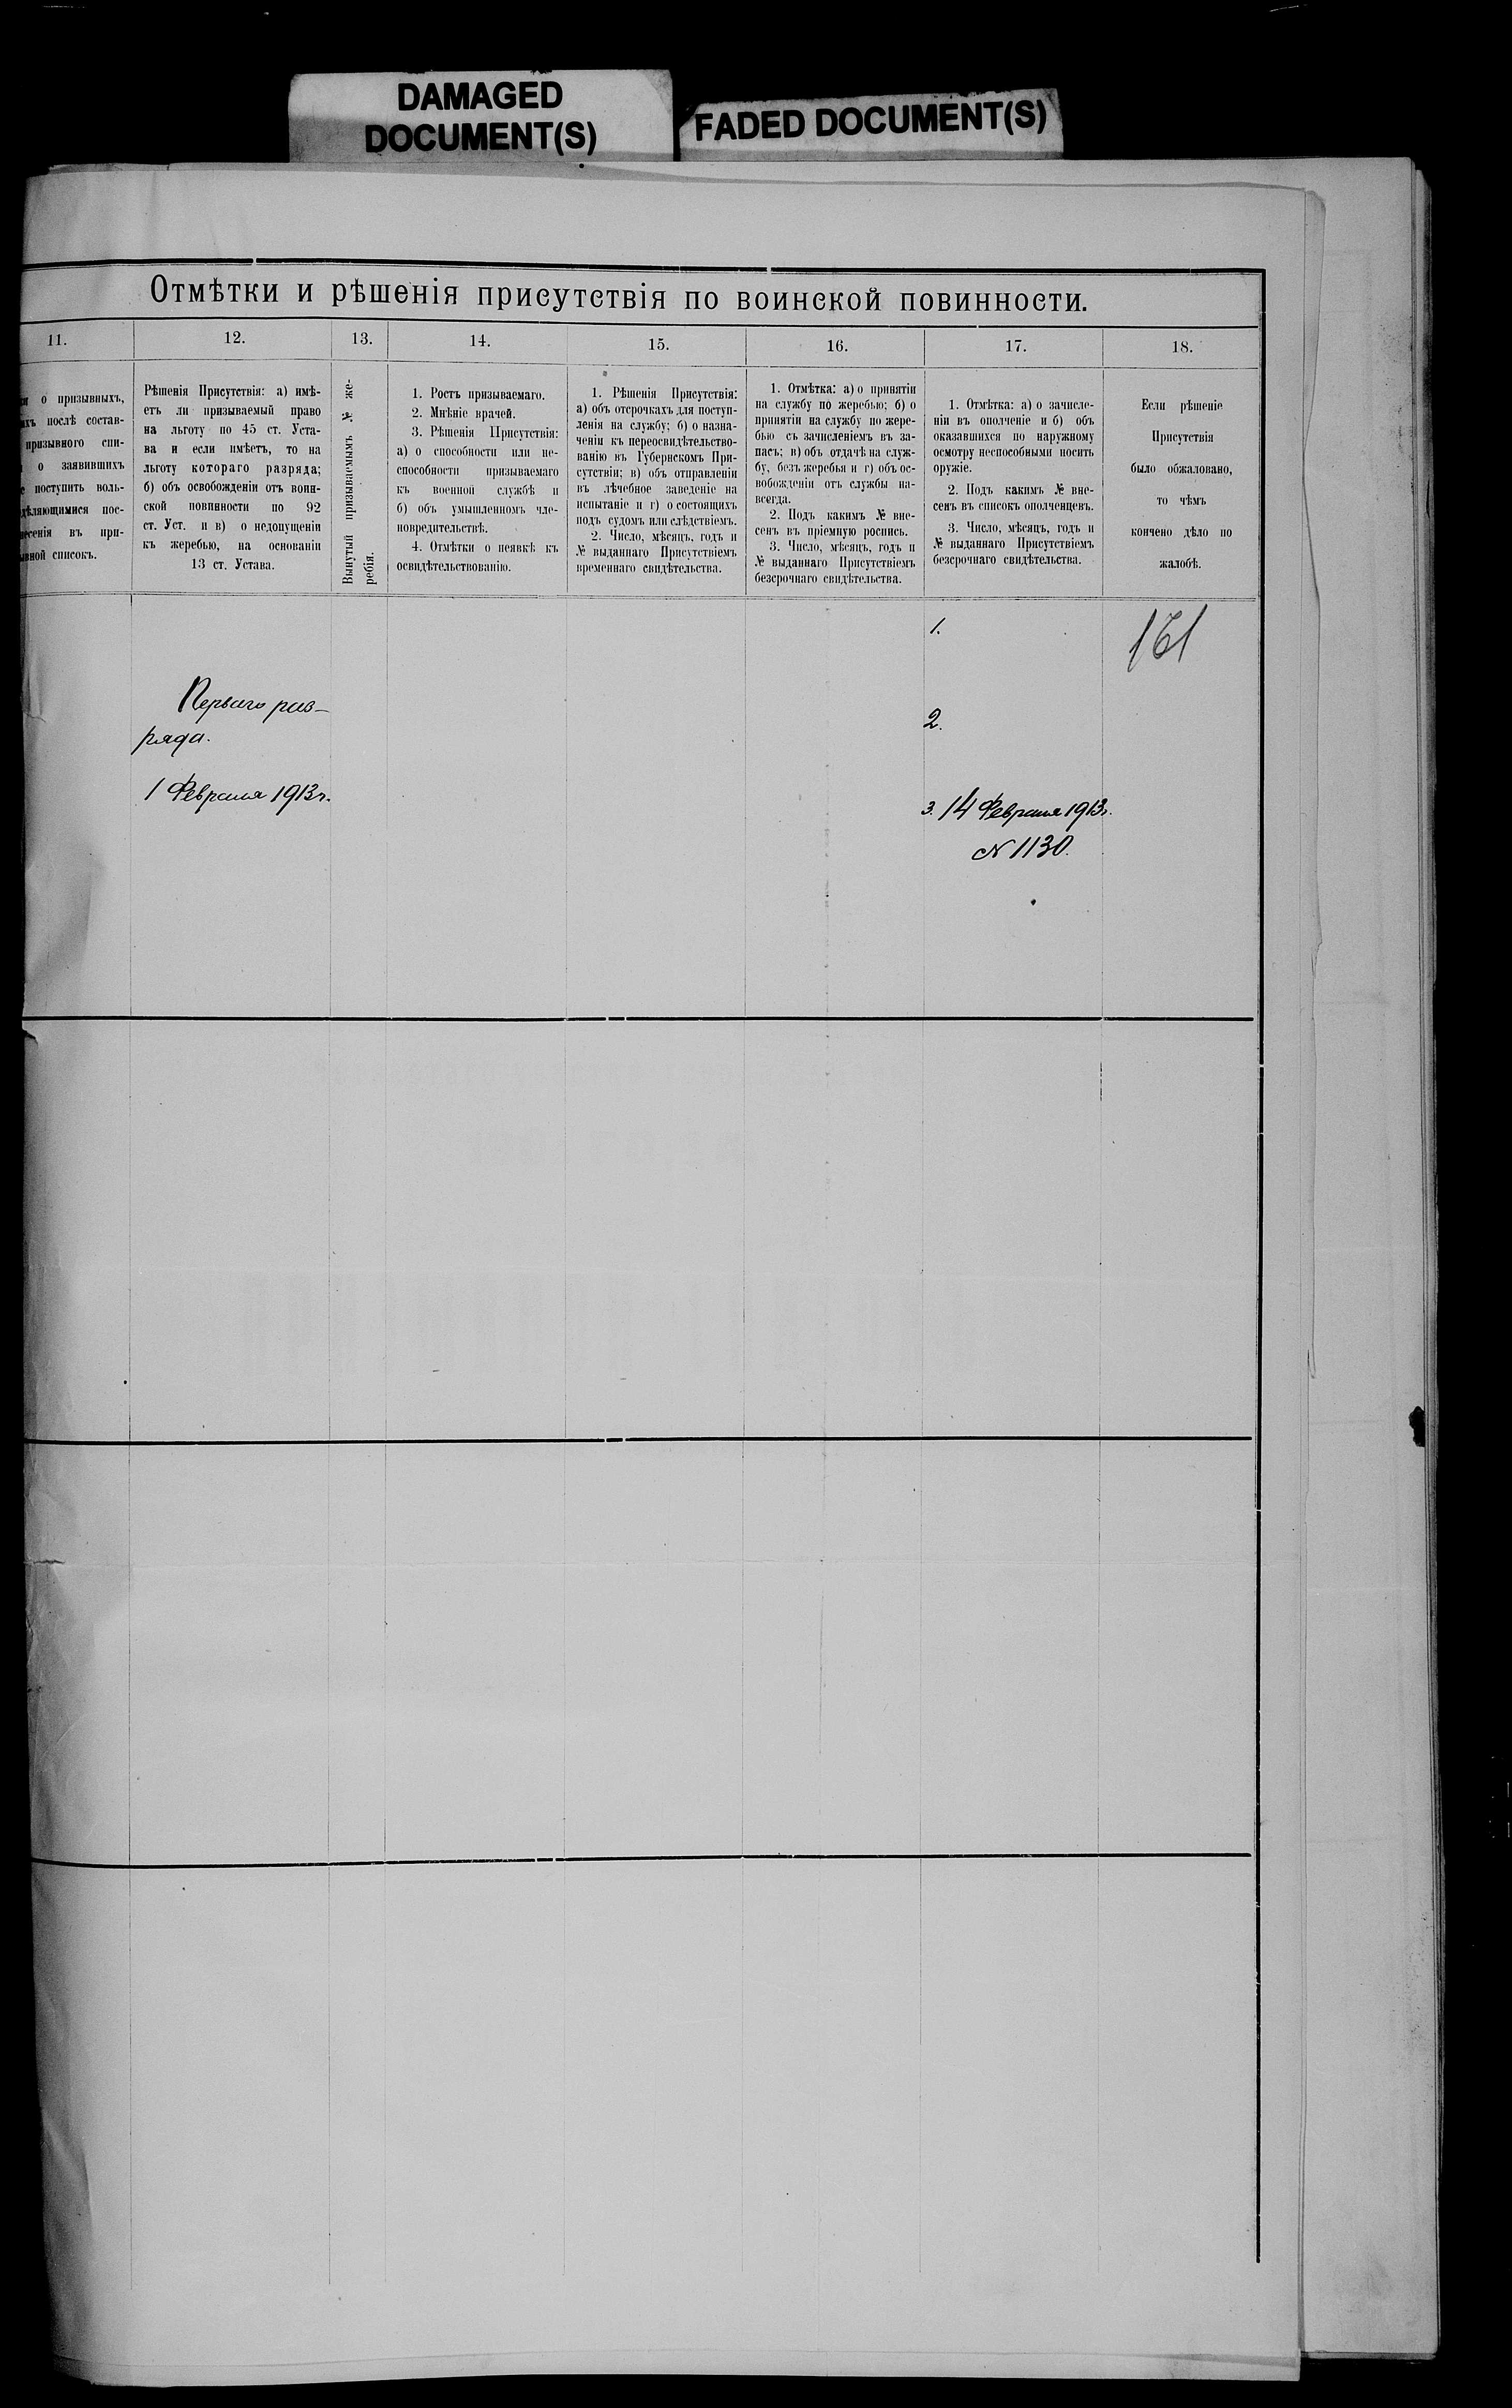 DAMAGED
DOCUMENT(S)
FADED DOCUMENT(S)
Отмѣтки и рѣшенія присутствія по воинской повинности.
11.
12.
13.
14.
15.
16.
17.
18.
о призывныхъ,
послѣ состав-
призывного спи-
о заявившихъ
поступить воль-
пос-
въ при-
списокъ.
Рѣшенія Присутствія: а) имѣ-
етъ ли призываемый право
на льготу по 45 ст. Уста-
ва и если имѣетъ, то на
льготу котораго разряда;
б) объ освобожденіи отъ воин-
ской повинности по 92
ст. Уст. и в) о недопущеніи
къ жеребью, на основаніи
13 ст. Устава.
Вынутый призываемымъ № же-
ребія.
1. Ростъ призываемаго.
2. Мнѣніе врачей.
3. Рѣшенія Присутствія:
а) о способности или не-
способности призываемаго
къ военной службѣ и
б) объ умышленномъ чле-
новредительствѣ.
4. Отмѣтки о неявкѣ къ
освидѣтельствованію.
1. Рѣшенія Присутствія:
а) объ отсрочкахъ для поступ-
ленія на службу; б) о назна-
ченіи къ переосвидѣтельство-
ванію въ Губернскомъ При-
сутствіи; в) объ отправленіи
въ лѣчебное заведеніе на
испытаніе и г) о состоящихъ
подъ судомъ или слѣдствіемъ.
2. Число, мѣсяцъ, годъ и
№ выданнаго Присутствіемъ
временнаго свидѣтельства.
1. Отмѣтка: а) о принятіи
на службу по жеребью; б) о
принятіи на службу по жере-
бью съ зачисленіемъ въ за-
пасъ; в) объ отдачѣ на служ-
бу, безъ жеребья и г) объ ос-
вобожденіи отъ службы на-
всегда.
2. Подъ какимъ № вне-
сенъ въ пріемную роспись.
3. Число, мѣсяцъ, годъ и
№ выданнаго Присутствіемъ
безсрочнаго свидѣтельства.
1. Отмѣтка: а) о зачисле-
ніи въ ополченіе и б) объ
оказавшихся по наружному
осмотру неспособными носить
оружіе.
2. Подъ какимъ № вне-
сенъ въ списокъ ополченцевъ.
3. Число, мѣсяцъ, годъ и
№ выданнаго Присутствіемъ
безсрочнаго свидѣтельства.
Если рѣшеніе
Присутствія
было обжаловано,
то чѣмъ
кончено дѣло по
жалобѣ.
Перваго раз-
ряда.
1 Февраля 1913 г.
1.
2.
3. 14 Февраля 1913 г.
№ 1130.
161